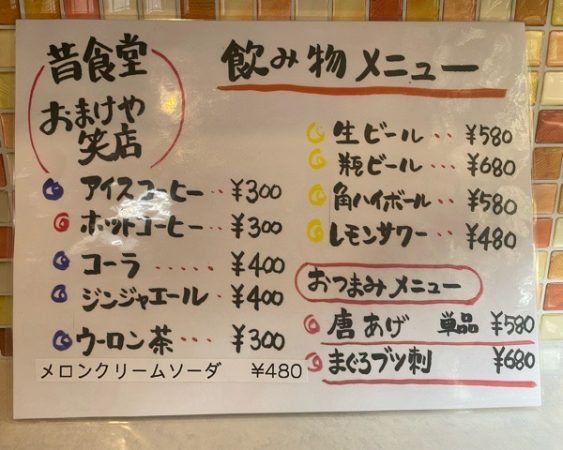 昔食堂
おまけや
笑店
飲み物メニュー
アイスコーヒー‥¥300
ホットコーヒー‥¥300
コーラ‥‥‥¥400
ジンジャエール‥¥400
ウーロン茶‥‥¥300
メロンクリームソーダ ¥480
生ビール‥‥¥580
瓶ビール‥‥¥680
角ハイボール‥¥580
レモンサワー‥¥480
おつまみメニュー
唐あげ 単品¥580
まぐろブツ刺 ¥680